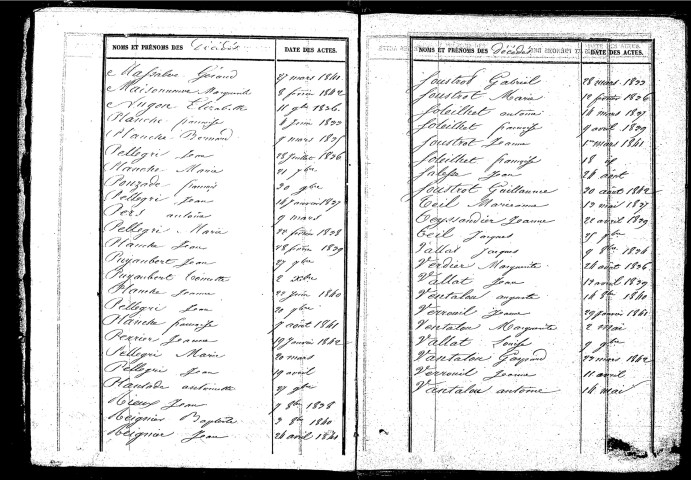 NOMS ET PRÉNOMS DES Décédés DATE DES ACTES.
Massabre Géraud 27 mars 1841
Maisonneuve Marguerite 8 février 1842
Nugon Elisabeth 11 9bre 1836
Planche françois 4 Juin 1833
Planche Bernard 9 mars 1835
Pellegri Jean 28 Juillet 1836
Planche Marie 21 9bre
Pouzade françois 20 9bre
Pellegri Jean 14 Janvier 1837
Pers antoine 9 mars
Pellegri Marie 22 février 1838
Planche Jean 28 février 1839
Puyaubert Jean 27 9bre
Puyaubert 2 Xbre
Planche Jeanne 21 Juin 1840
Pellegri Jean 20 9bre
Planche françoise 7 août 1841
Perrier Jeanne 19 Janvier 1842
Pellegri Marie 20 mars
Pellegri Jean 19 avril
Plantade antoinette 27 9bre
Rieux Jean 9 8bre 1838
Reignier Baptiste 3 8bre 1840
Reignier Jean 24 avril 1841
NOMS ET PRÉNOMS DES Décédés DATE DES ACTES.
Soustrot Gabriel 28 mars 1833
Soustrot Marie 12 février 1836
Soleilhet antoine 14 mars 1837
Soleilhet françois 9 avril 1839
Soustrot Jeanne 1er mars 1841
Soleilhet françois 18 id
Salesse Jean 24 août
Soustrot Guillaume 20 août 1842
Teil Marianne 13 mai 1837
Teyssandier Jeanne 22 avril 1839
Teil Jacques 25 9bre
Vallat Jacques 9 8bre 1834
Verdier Marguerite 24 août 1836
Vallat Jean 13 avril 1839
Ventalon auguste 14 8bre 1840
Verreuil Jeanne 29 Janvier 1841
Ventalon Marguerite 2 mai
Vallat Louise 9 9bre
Vantalon Géraud 23 mars 1842
Verreuil Jeanne 11 avril
Vantalon antoine 14 mai